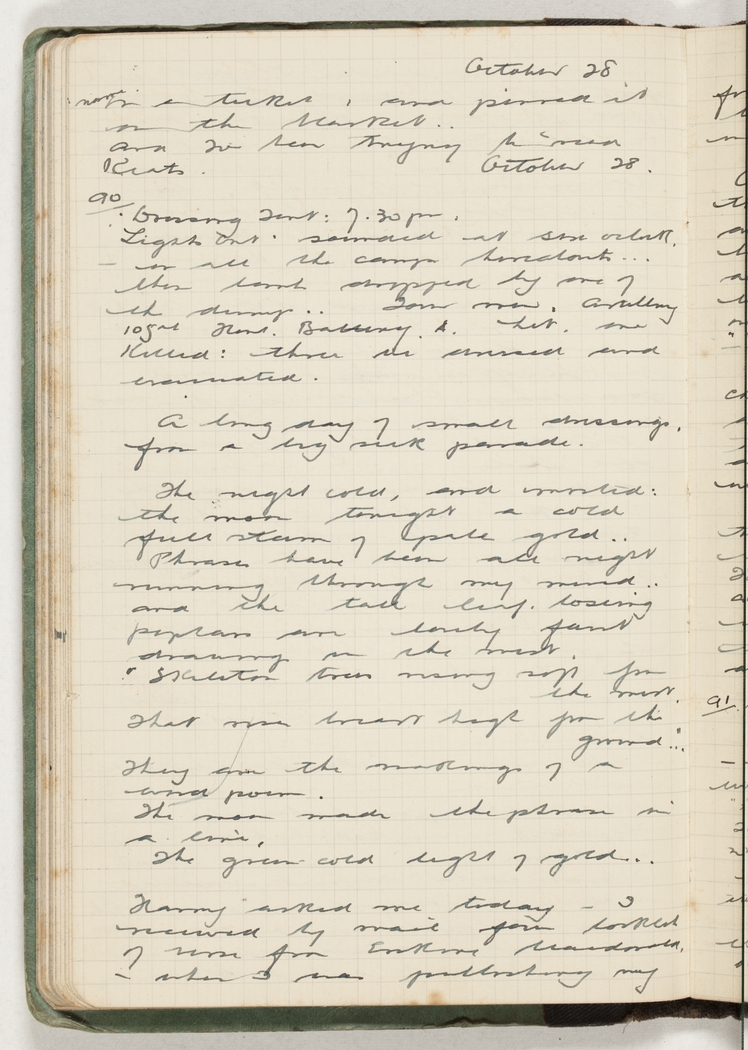 October 28
name on a ticket, and pinned it
on the blanket..
And I've been trying to read
Keats. October 28.
90
Dressing Tent: 7.30 pm.
"Lights Out" sounded at six o'clock,
– in all the camps thereabouts...
then bomb dropped by one of
the
Four men, Artillery
105th Battery, A. hit, one
killed: three we dressed and
evacuated.
A long day of small dressings,
from a big sick parade.
The night cold, and misted:
the moon tonight a cold
full of pale gold..
Phrases have been all night
running through my mind..
and the tall leaf losing
poplars are lovely faint
drawings in the mist.
"Skeleton trees rising soft from
the mist,
That rises breast high from the
ground".
They are the makings of a
word poem.
The moon made the phrase in
a line,
The green cold light of gold...
Harry asked me today – I
received by mail four booklets
of verse from Erskine Macdonald,
– when I was publishing my
fr
91